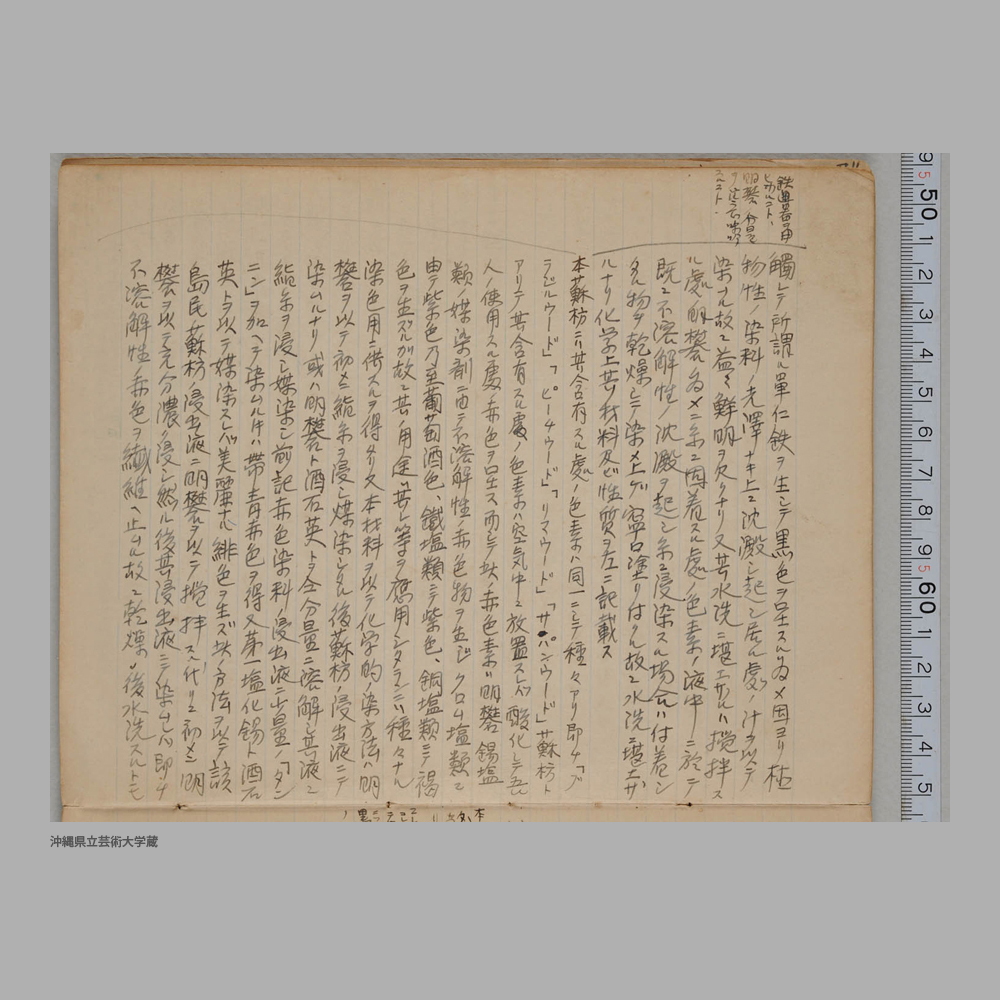 鉄鹽器ヲ用
ヒサルコト、
明礬ノ分量
觸レテ所謂ル單仁鉄ヲ生シテ黒色ヲ呈スル為メ因ヨリ植
物性ノ染料ノ光澤ナキ上ニ沈殿シ起シ居ル處ノ汁ヲ以テ
染ムル故ニ益々鮮明ヲ欠クナリ又其水洗ニ堪エサルハ攪拌ス
ル處ノ明礬為メニ糸ニ固着スル處ノ色素ノ液中ニ於テ
既ニ不溶解性ノ沈殿ヲ起シ糸ニ浸染スル場合ハ付着シ
タル物ヲ乾燥シテ染メ上ゲ寧口塗リ付ケタル故ニ水洗ニ堪エサ
ルナリ化学上其ノ材料及ビ性質ヲ左ニ記載ス
本蘇枋ニ其含有スル處ノ色素ハ同一ニシテ種々アリ即チ「ブ
ラジルウード」「ピーチウード」「リマウード」「サパンウード」蘇枋ト
アリテ其含有スル處ノ色素ハ空気中ニ放置スレバ酸化シテ吾
人ノ使用スル處ノ赤色ヲ呈ス而シテ此ノ赤色素ハ明礬錫塩
類ノ媒染剤ニ由テ不溶解性ノ赤色物ヲ生ジクロム塩類ニ
由テ紫色乃至葡萄酒色、鐵塩類ニテ紫色、銅塩類ニテ褐
色ヲ生ズルガ故ニ其ノ用途ハ其レ等ヲ應用シタランニハ種々ナル
染色用ニ供スルヲ得ベク又本材料ヲ以テ化学的ノ染方法ハ明
礬ヲ以テ初メ絁糸ヲ浸シ媒染シタル後蘇枋ノ浸出液ニテ
染ムルナリ或ハ明礬ト酒石英トヲ仝分量ニ溶解シ其液ニ
絁糸ヲ浸シ媒染シ前記赤色染料ノ浸出液ニ少量ノ「タン
ニン」ヲ加ヘテ染ムル片ハ帯青赤色ヲ得又第一塩化錫ト酒石
英トヲ以テ媒染スレバ美靈ナル緋色ヲ生ズ此ノ方法ヲ以テ該
島民蘇枋ノ浸出液ニ明礬ヲ以テ攪拌スル代リニ初メニ明
礬ヲ以テ充分濃ク浸シ然ル後其浸出液ニテ染ムレバ即チ
不溶解性ノ赤色ヲ繊維ヘ止ムル故ニ乾燥ノ後水洗スルトモ
沖縄県立芸術大学蔵